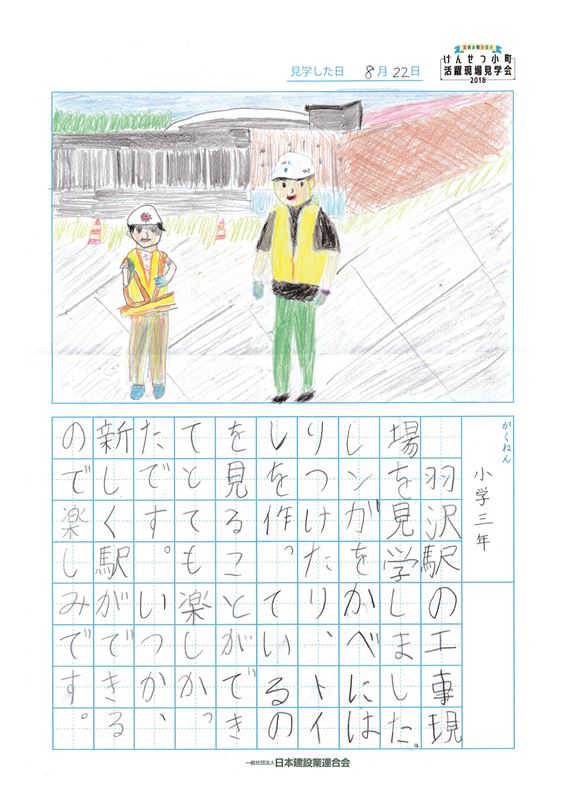 けんせつ小町
活躍現場見学会
2018
見学した日 8月22日
がくねん
小学三年
羽沢駅の工事現
場を見学しました。
レンガをかべには
りつけたり、トイ
レを作っているの
を見ることができ
てとても楽しかっ
たです。いつか、
新しく駅ができる
ので楽しみです。
一般社団法人 日本建設業連合会